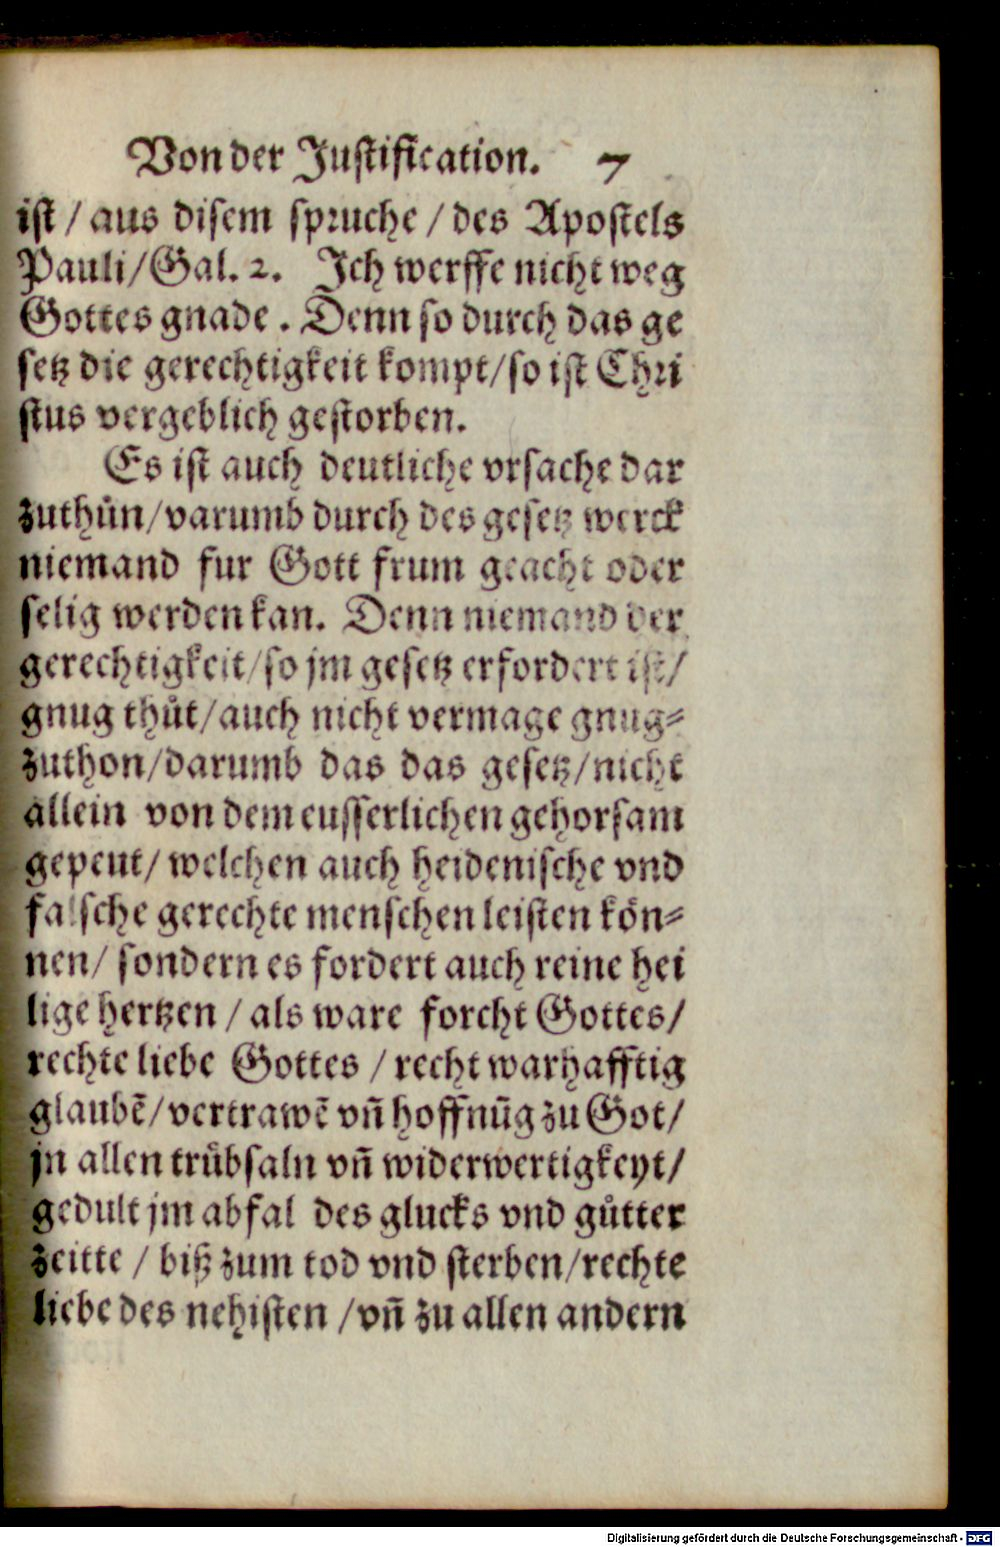 Von der Justification. 7
ist / aus disem spruche / des Apostels
Pauli/Gal. 2. Ich werffe nicht weg
Gottes gnade . Denn so durch das ge
setz die gerechtigkeit kompt/so ist Chri
stus vergeblich gestorben.
Es ist auch deutliche vrsache dar
zuthůn/varumb durch des gesetz werck
niemand fur Gott frum geacht oder
selig werden kan. Denn niemand der
gerechtigkeit/so jm gesetz erfordert ist/
gnug thůt/auch nicht vermage gnug⸗
zuthon/darumb das das gesetz/nicht
allein von dem eusserlichen gehorsam
gepeut/ welchen auch heidenische vnd
falsche gerechte menschen leisten kön⸗
nen/ sondern es fordert auch reine hei
lige hertzen / als ware forcht Gottes/
rechte liebe Gottes / recht warhafftig
glaubẽ/vertrawẽ vñ hoffnũg zu Got/
jn allen trůbsaln vñ widerwertigkeyt/
gedult jm abfal des glucks vnd gůtter
zeitte / biß zum tod vnd sterben/rechte
liebe des nehisten /vñ zu allen andern
Digitalisierung gefördert durch die Deutsche Forschungsgemeinschaft - DFG